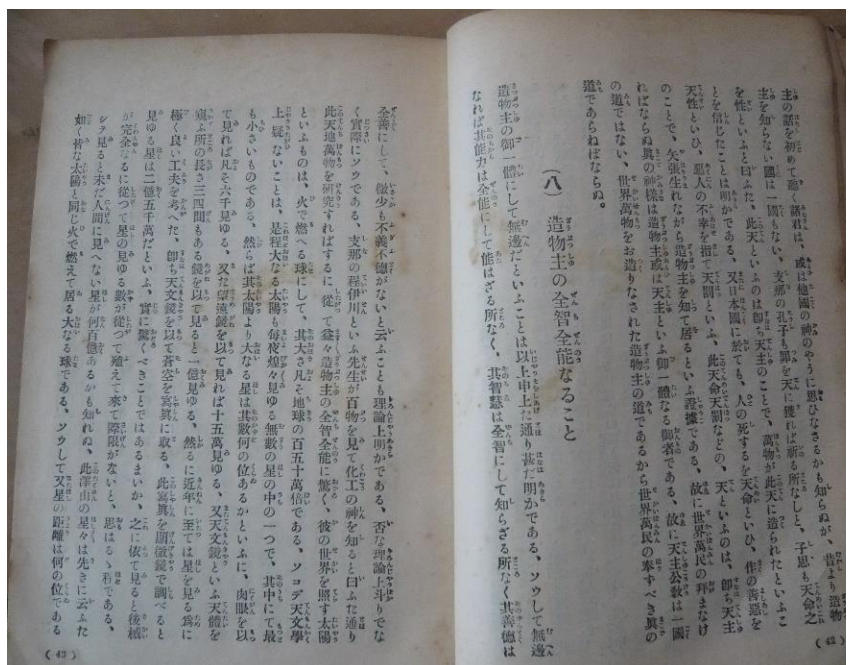 主の話を初めて聽く諸君は、或は他國の神のやうに思ひなさるかも知らぬが、昔より造物
主を知らない國は一國もない、支那の孔子も罪を天に獲れば祈る所なしと、子思も天命之
を性といふと曰ふた、此天といふのは卽ち天主のことで、萬物が此天に造られたといふこ
とを信じたことは明かである、又日本國に於ても、人の死するを天命といひ、作の善惡を
天性といひ、惡人の不幸を指て天罰といふ、此天命天罰などの、天といふのは、卽ち天主
のことで、矢張生れながら造物主を知て居るといふ證據である、故に世界萬民の拜まなけ
ればならぬ眞の神樣は造物主或は天主といふ御一體なる御者である、故に天主公敎は一國
の道ではない、世界萬物をお造りなされた造物主の道であるから世界萬民の奉すべき眞の
道であらねばならぬ。
(八) 造物主の全智全能なること
造物主の御一體にして無邊だといふことは以上申上た通り甚だ明かである、ソウして無邊
なれば其能力は全能にして能はざる所なく、其智慧は全智にして知らざる所なく其善德は
(42)
全善にして、微少も不義不德がないと云ふことも理論上明かである、否な理論上斗りでな
く實際にソウである、支那の程伊川といふ先生が百物を見て化工の神を知ると曰ふた通り
此天地萬物を研究すればするに從て益々造物主の全智全能に驚く、彼の世界を照す太陽
といふものは、火で燃へる球にして、其大さ凡そ地球の百五十萬倍である、ソコデ天文學
上疑ないことは、是程大なる太陽も每夜煌々見ゆる無數の星の中の一つで、其中にて最
も小さいものである、然らば其太陽より大なる星は其數何の位あるかといふに、肉眼を以
て見れば凡そ六千見ゆる、又た望遠鏡を以て見れば十五萬見ゆる、又天文鏡といふ天體を
窺ふ所の長さ三四間もある鏡を以て見ると一億見ゆる、然るに近年に至ては星を見る爲に
極く良い工夫を考へた、卽ち天文鏡を以て蒼空を寫眞に取る、此寫眞を顯微鏡で調べると
見ゆる星は二億五千萬だといふ、實に驚くべきことではあるまいか、之に依て見ると後械
が完全なるに從つて星の見ゆる數が從つて殖えて來て際限がないと、思はるゝ程である、
シテ見ると未だ人間に見へない星が何百億あるかも知れぬ、此澤山の星々は先きに云ふた
如く皆な太陽と同じ火で燃えて居る大なる球である、ソウして又星の距離は何の位である
(43)